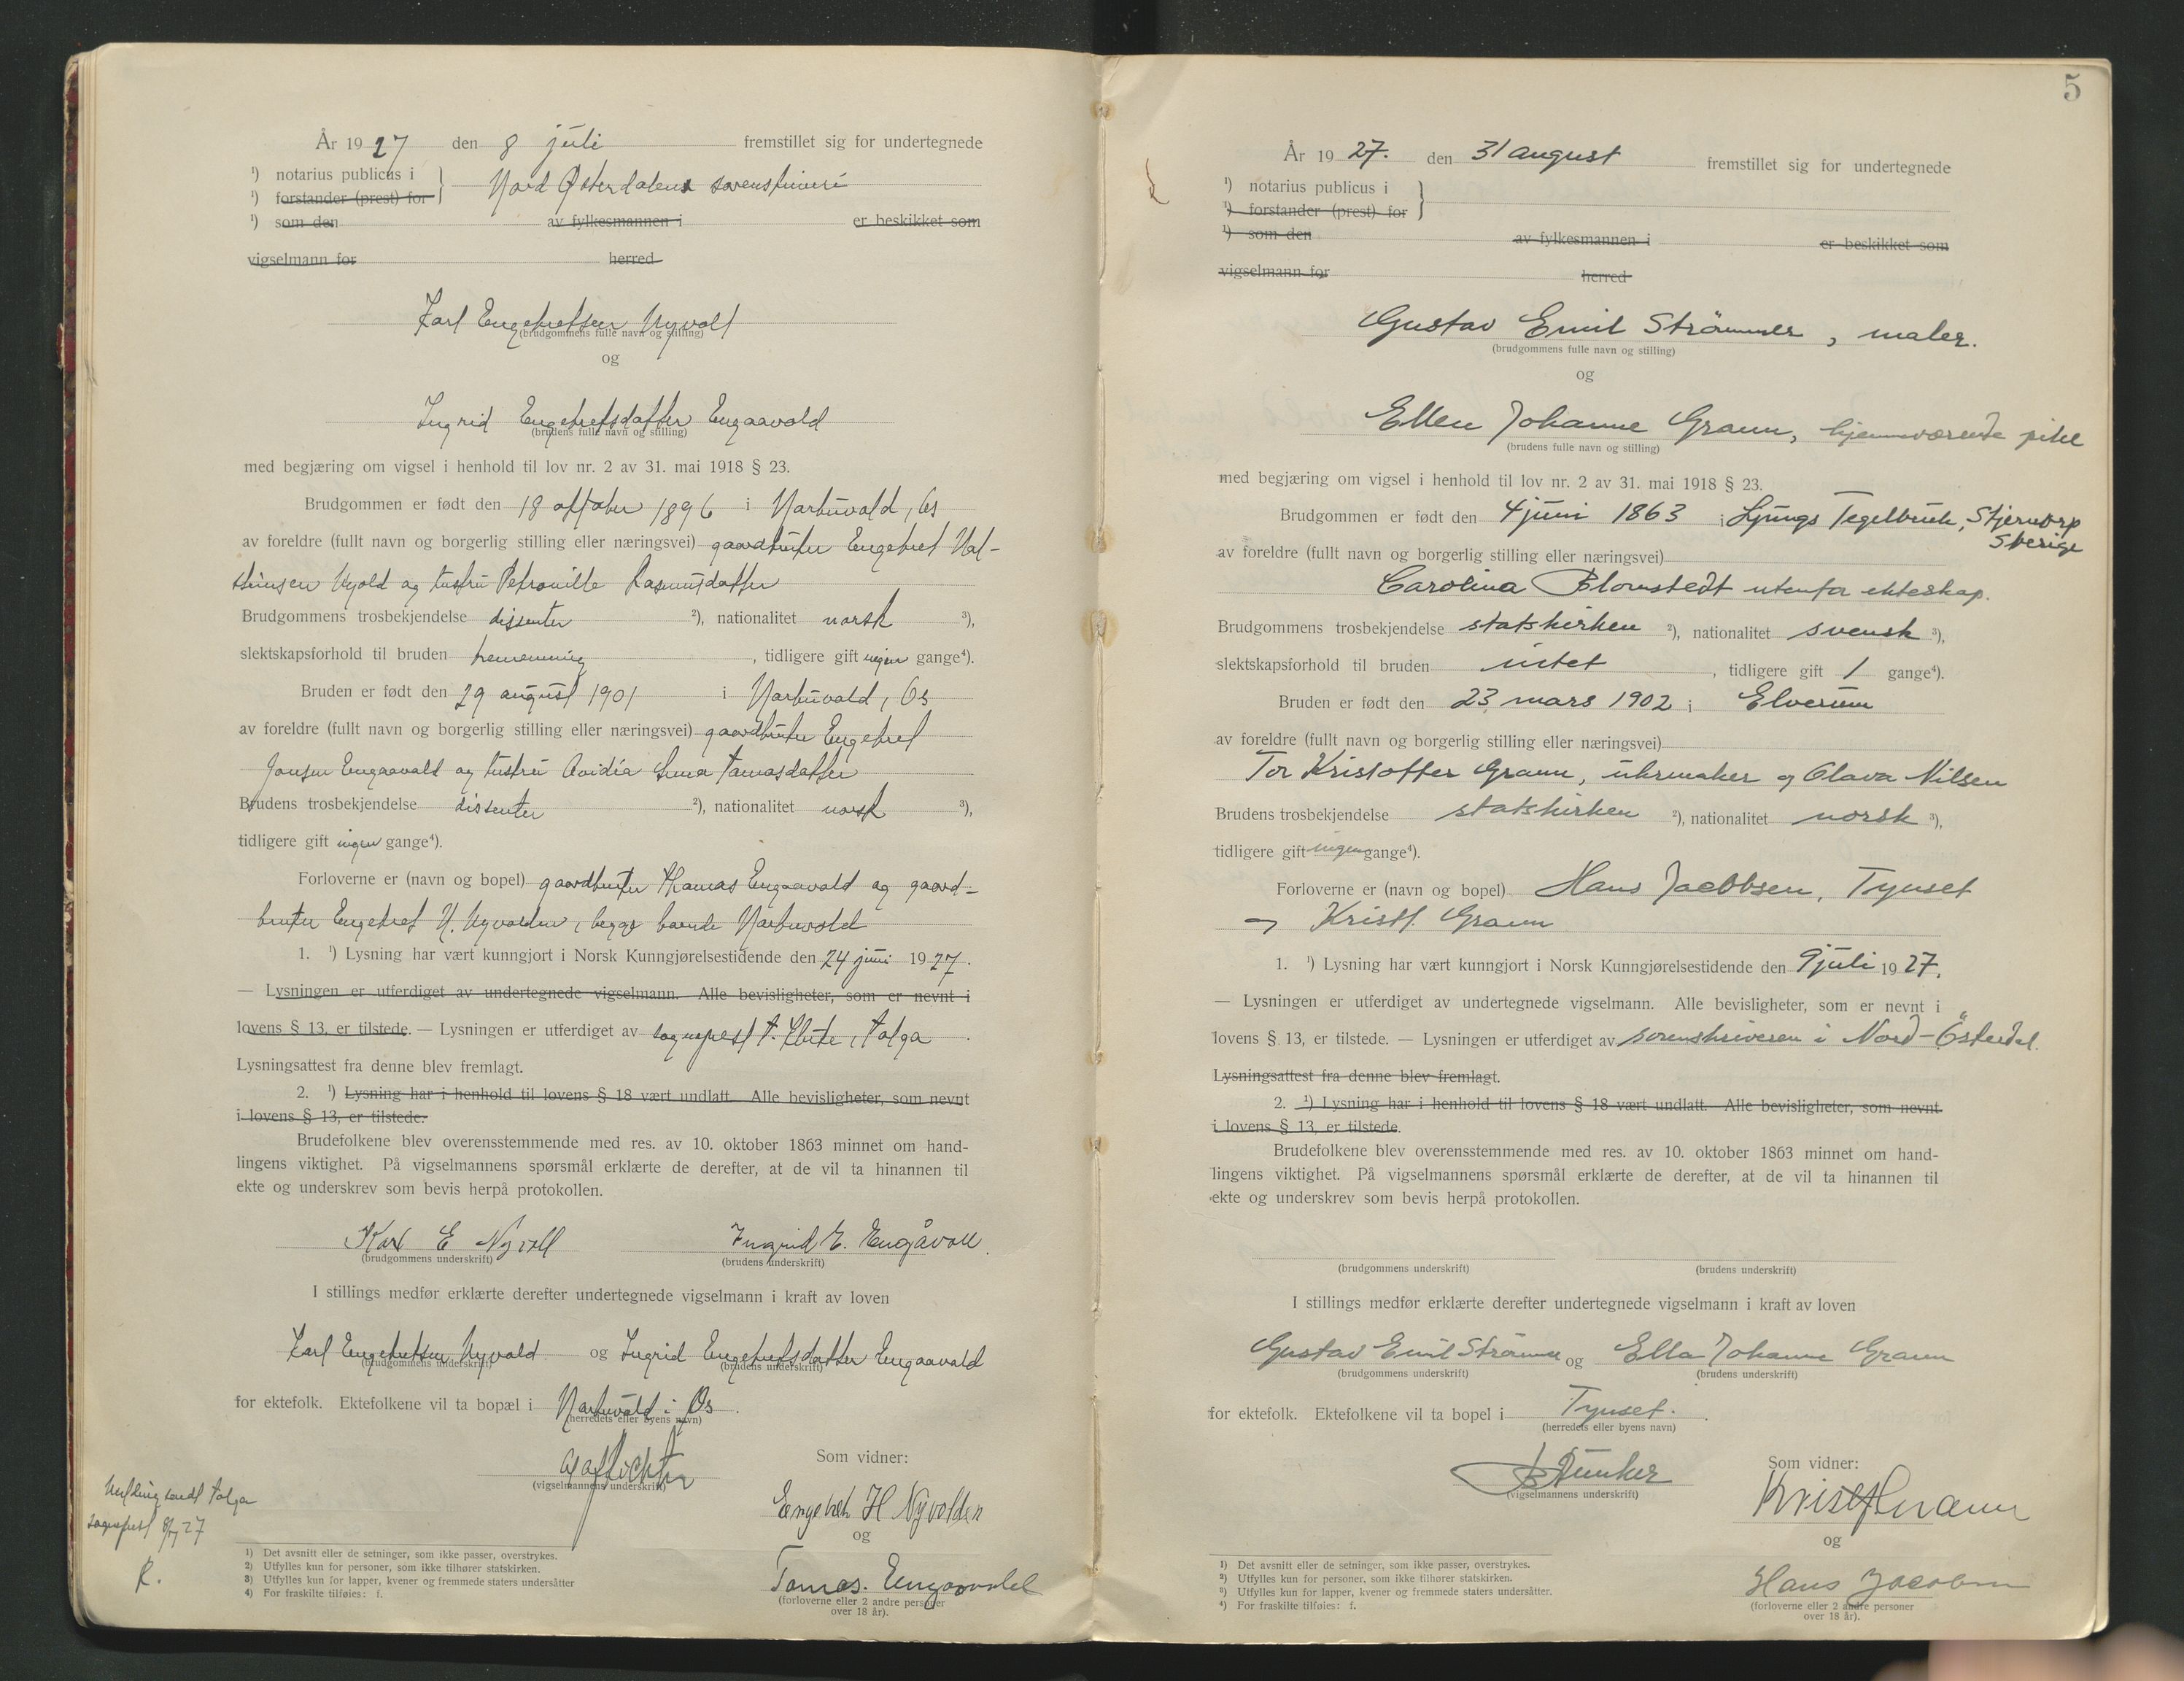 År 1927 den 8 juli fremstillet sig for undertegnede
¹) notarius publicus i
¹) forstander (prest) for
Nord Østerdalens sorenskriveri
¹) som den av fylkesmannen i er beskikket som
vigselmann for herred
Karl Engebretsen Nyvoll
(brudgommens fulle navn og stilling)
og
Ingrid Engebretsdatter Engaavold
(brudens fulle navn og stilling)
med begjæring om vigsel i henhold til lov nr. 2 av 31. mai 1918 § 23.
Brudgommen er født den 18 oktober 1896 i Narbuvold, Os
av foreldre (fullt navn og borgerlig stilling eller næringsvei) gaardbruker Engebret
og hustru Petronille Rasmusdatter
Brudgommens trosbekjendelse dissenter ²), nationalitet norsk ³),
slektskapsforhold til bruden fremenning , tidligere gift ingen gange⁴).
Bruden er født den 29 august 1901 i Narbuvold, Os
av foreldre (fullt navn og borgerlig stilling eller næringsvei) gaardbruker Engebret
Jonsen Engaavold og hustru Tamasdatter
Brudens trosbekjendelse dissenter ²), nationalitet norsk ³),
tidligere gift ingen gange⁴).
Forloverne er (navn og bopel) gaardbruker Thomas Engaavold og gaard-
bruker Engebret H. Nyvolden, begge boende Narbuvold
1. ¹) Lysning har vært kunngjort i Norsk Kunngjørelsestidende den 24 juni 1927.
— Lysningen er utferdiget av undertegnede vigselmann. Alle bevisligheter, som er nevnt i
lovens § 13, er tilstede. — Lysningen er utferdiget av sogneprest Tolga.
Lysningsattest fra denne blev fremlagt.
2. ¹) Lysning har i henhold til lovens § 18 vært undlatt. Alle bevisligheter, som nevnt
i lovens § 13, er tilstede.
Brudefolkene blev overensstemmende med res. av 10. oktober 1863 minnet om hand-
lingens viktighet. På vigselmannens spørsmål erklærte de derefter, at de vil ta hinannen til
ekte og underskrev som bevis herpå protokollen.
Karl E Nyvoll Ingrid E. Engåvoll.
(brudgommens underskrift) (brudens underskrift)
I stillings medfør erklærte derefter undertegnede vigselmann i kraft av loven
Karl Engebretsen Nyvold og Ingrid Engebretsdatter Engaavold
(brudgommens underskrift) (brudens underskrift)
for ektefolk. Ektefolkene vil ta bopæl i Narbuvold i Os.
(herredets eller byens navn)
(vigselmannens underskrift)
Som vidner:
Engebret H Nyvolden
og
Tomas. Engaavold
(forloverne eller 2 andre personer
over 18 år).
Melding sendt Tolga
sogneprest 8/7 27
R.
¹) Det avsnitt eller de setninger, som ikke passer, overstrykes.
²) Utfylles kun for personer, som ikke tilhører statskirken.
³) Utfylles kun for lapper, kvener og fremmede staters undersåtter
⁴) For fraskilte tilføies: f.
5
År 1927. den 31 august fremstillet sig for undertegnede
¹) notarius publicus i
¹) forstander (prest) for
¹) som den av fylkesmannen i er beskikket som
vigselmann for herred
Gustav Emil Strömmer, maler.
(brudgommens fulle navn og stilling)
og
Ellen Johanne Graun, hjemmeværende pike
(brudens fulle navn og stilling)
med begjæring om vigsel i henhold til lov nr. 2 av 31. mai 1918 § 23.
Brudgommen er født den 4 juni 1863 i Ljungs Tegelbruk, Stjernorp
Sverige
av foreldre (fullt navn og borgerlig stilling eller næringsvei)
Carolina Blomstedt utenfor ekteskap.
Brudgommens trosbekjendelse statskirken ²), nationalitet svensk ³),
slektskapsforhold til bruden intet , tidligere gift 1 gange⁴).
Bruden er født den 23 mars 1902 i Elverum
av foreldre (fullt navn og borgerlig stilling eller næringsvei)
Tor Kristoffer Graun, uhrmaker og Olava Nilsen
Brudens trosbekjendelse statskirken ²), nationalitet norsk ³),
tidligere gift ingen gange⁴).
Forloverne er (navn og bopel) Hans Jacobsen, Tynset
og Kristf. Graun
1. ¹) Lysning har vært kunngjort i Norsk Kunngjørelsestidende den 9 juli 1927.
— Lysningen er utferdiget av undertegnede vigselmann. Alle bevisligheter, som er nevnt i
lovens § 13, er tilstede. — Lysningen er utferdiget av sorenskriveren i Nord-Österdal.
Lysningsattest fra denne blev fremlagt.
2. ¹) Lysning har i henhold til lovens § 18 vært undlatt. Alle bevisligheter, som nevnt
i lovens § 13, er tilstede.
Brudefolkene blev overensstemmende med res. av 10. oktober 1863 minnet om hand-
lingens viktighet. På vigselmannens spørsmål erklærte de derefter, at de vil ta hinannen til
ekte og underskrev som bevis herpå protokollen.
(brudgommens underskrift) (brudens underskrift)
I stillings medfør erklærte derefter undertegnede vigselmann i kraft av loven
Gustav Emil Strömmer og Ella Johanne Graun
(brudgommens underskrift) (brudens underskrift)
for ektefolk. Ektefolkene vil ta bopel i Tynset.
(herredets eller byens navn)
B Dunker
(vigselmannens underskrift)
Som vidner:
Kristf Graun
og
Hans Jacobsen
(forloverne eller 2 andre personer
over 18 år).
¹) Det avsnitt eller de setninger, som ikke passer, overstrykes.
²) Utfylles kun for personer, som ikke tilhører statskirken.
³) Utfylles kun for lapper, kvener og fremmede staters undersåtter.
⁴) For fraskilte tilføies: f.